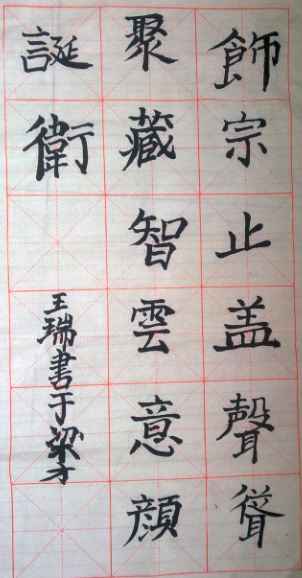 飾宗止盖聲聳
聚藏智雲意顔
誕衛
王瑞書于梁才